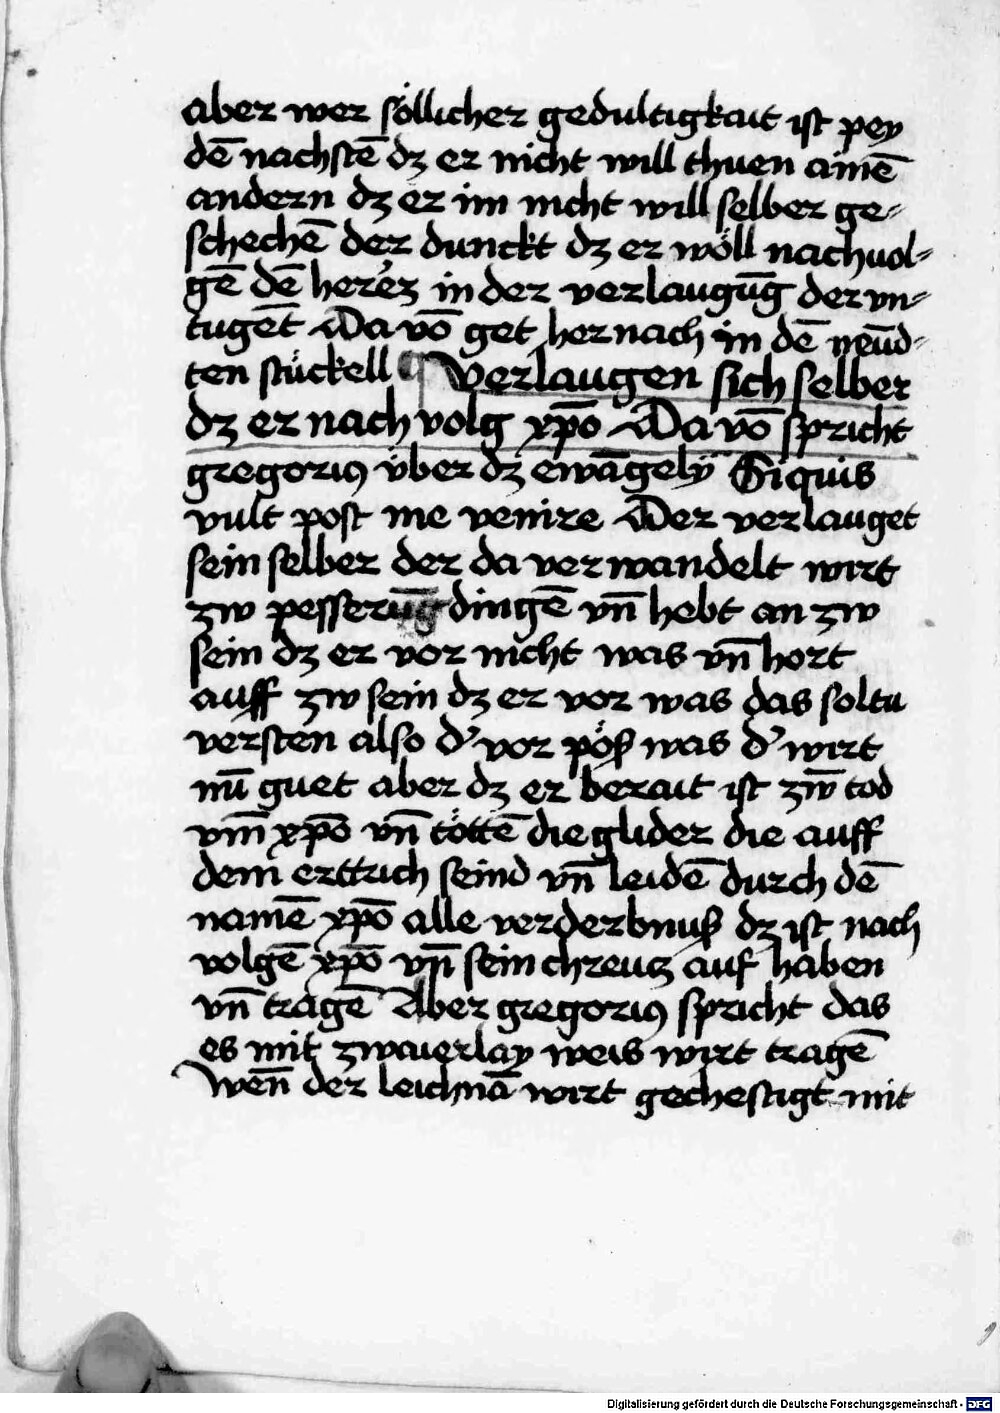 aber wer söllicher gedultigkait ist pey
dē nachstē dz er nicht will thuen ainē
andern dz er im nicht will selber ge-
schechē der dunckt dz er wöll nachuol-
gē dē herrē in der verlaugūg der vn-
tugēt Da vō get hernach in dē neūd-
ten stückell ¶ Verlaugen sich selber
dz er nach volg xp̄o Da vō spricht
gregorius über dz ewāgely Siquis
vult post me venire Der verlauget
sein selber der da verwandelt wirt
zw pesserūg dingē vn̄ hebt an zw
sein dz er vor nicht was vn̄ hort
auff zw sein dz er vor was das soltu
versten also d' vor pöß was d' wirt
nū guet aber dz er berait ist zw̄ tod
vm̄ xp̄o vn̄ töttē die glider die auff
dem erttrich seind vn̄ leidē durch dē
namē xp̄o alle verderbnuß dz ist nach
volgē xp̄o vn̄ sein chreutz auf haben
vn̄ tragē Aber gregorius spricht das
es mit zwaierlay weis wirt tragē
Wen̄ der leichnā wirt gechestigt mit
Digitalisierung gefördert durch die Deutsche Forschungsgemeinschaft - DFG